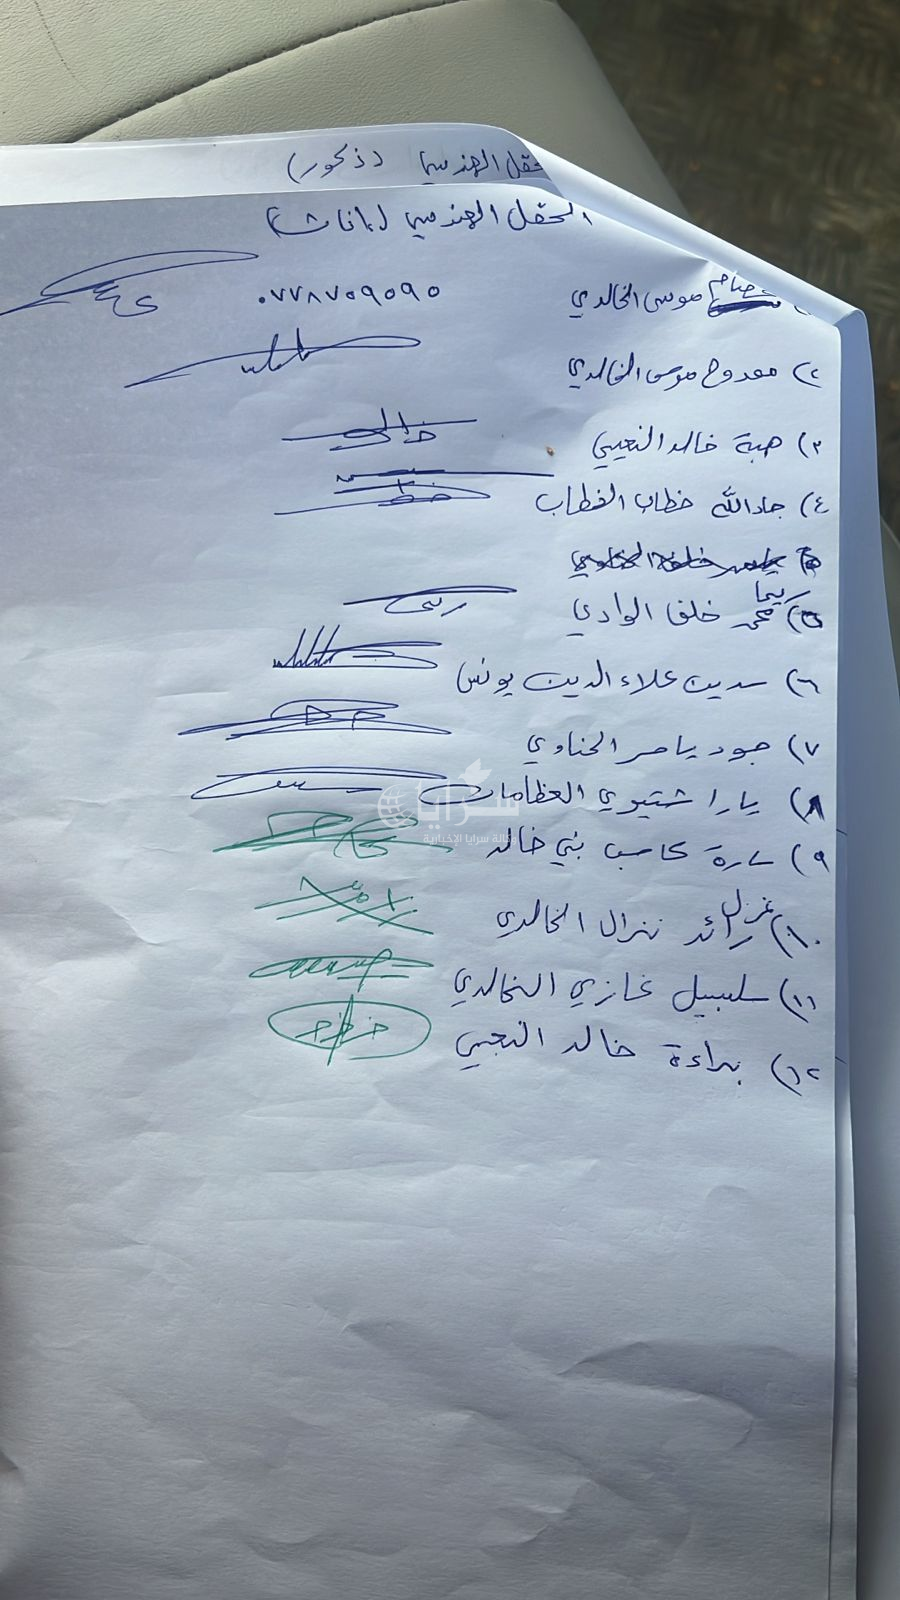 الحقل الهندسي (ذكور)
الحقل الهندسي (اناث)
موسى الخالدي ٠٧٧٨٧٥٩٥٩٥
٢) ممدوح موسى الخالدي
٣) هبة خالد النعيمي
٤) جاد الله خطاب الخطاب
ريما
٥) محمد خلف الوادي
٦) سدين علاء الدين يونس
٧) جود ياسر الحناوي
٨) يارا شتيوي العظامات
سرايا
وكالة سرايا الإخبارية
٩) سارة كاسب بني خالد
غزل
١٠) رائد نزال الخالدي
١١) سلسبيل غازي الخالدي
١٢) براءة خالد النعيمي